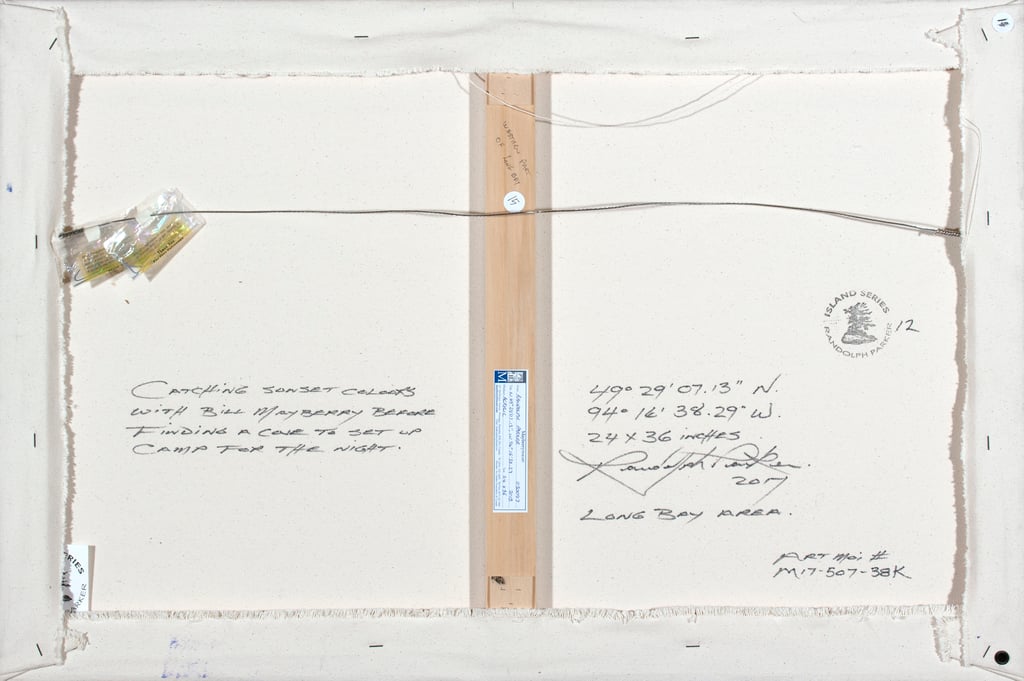 14
WESTERN PART
OF LONG BAY
15
ISLAND SERIES
RANDOLPH PARKER
12
CATCHING SUNSET COLOURS
WITH BILL MAYBERRY BEFORE
FINDING A COVE TO SET UP
CAMP FOR THE NIGHT.
49° 29' 07.13" N.
94° 16' 38.29" W.
24 X 36 INCHES.
Randolph Parker.
2017
LONG BAY AREA.
ART MOI #
M17-507-38K
M
RIES
RKER